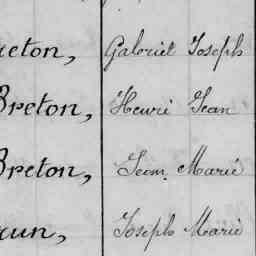 reton, Gabriel Joseph
Breton, Henri Jean
Breton, Jean Marie
run, Joseph Marie